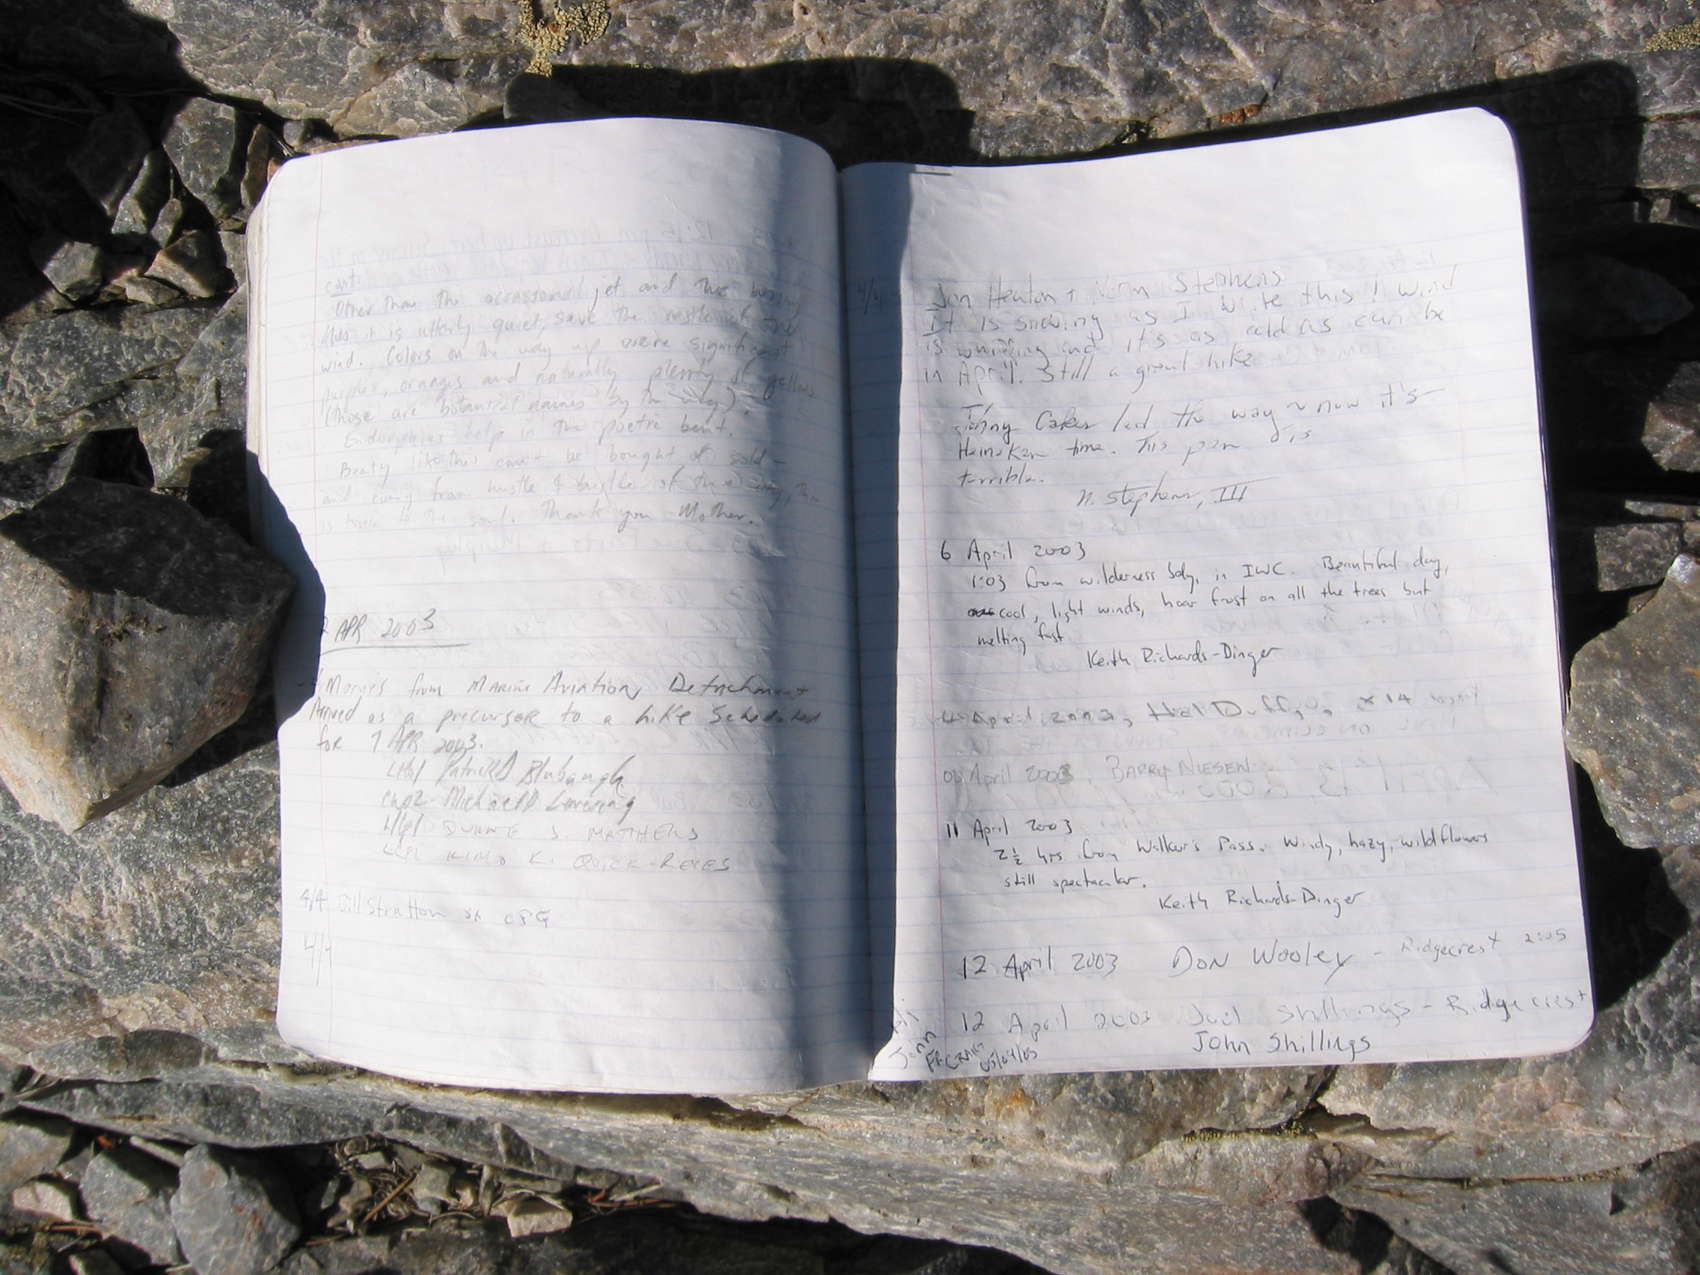 cont.
Other than the occasional jet and the buzzing
flies it is utterly quiet, save the rustle of the
wind. Colors on the way up were significant
purples, oranges and naturally plenty of yellows
(those are botanical names by the way).
Endorphins help in the poetic bent.
Beaty like this can't be bought or sold -
and away from hustle & bustle of the
is to the soul. Thank you Mother.
2 APR 2003
Marines from Marine Aviation Detachment
Arrived as a precursor to a hike scheduled
for 7 APR 2003.
Patrick Blubaugh
Michael Lovering
DUANE S. MATHEWS
LCPL KIMO K. QUICK-REYES
4/4 Bill Stratton
4/4
4/4 Jon Heaton + Norm Stephens
It is snowing as I write this! Wind
is whipping and it's as cold as can be
in April. Still a great hike.
led the way ~ now it's
Heineken time. This pen is
terrible.
N. Stephens, III
6 April 2003
1:03 from wilderness bdy. in IWC. Beautiful day,
cool, light winds, hoar frost on all the trees but
melting fast
Keith Richards-Dinger
April 2003, x 14
06 April 2003, BARRY NIESEN
11 April 2003
2½ hrs from Walker's Pass. Windy, hazy, wildflowers
still spectacular.
Keith Richards-Dinger
12 April 2003 Don Wooley - Ridgecrest 2:05
12 April 2003 Joel Shillings - Ridgecrest
John Shillings